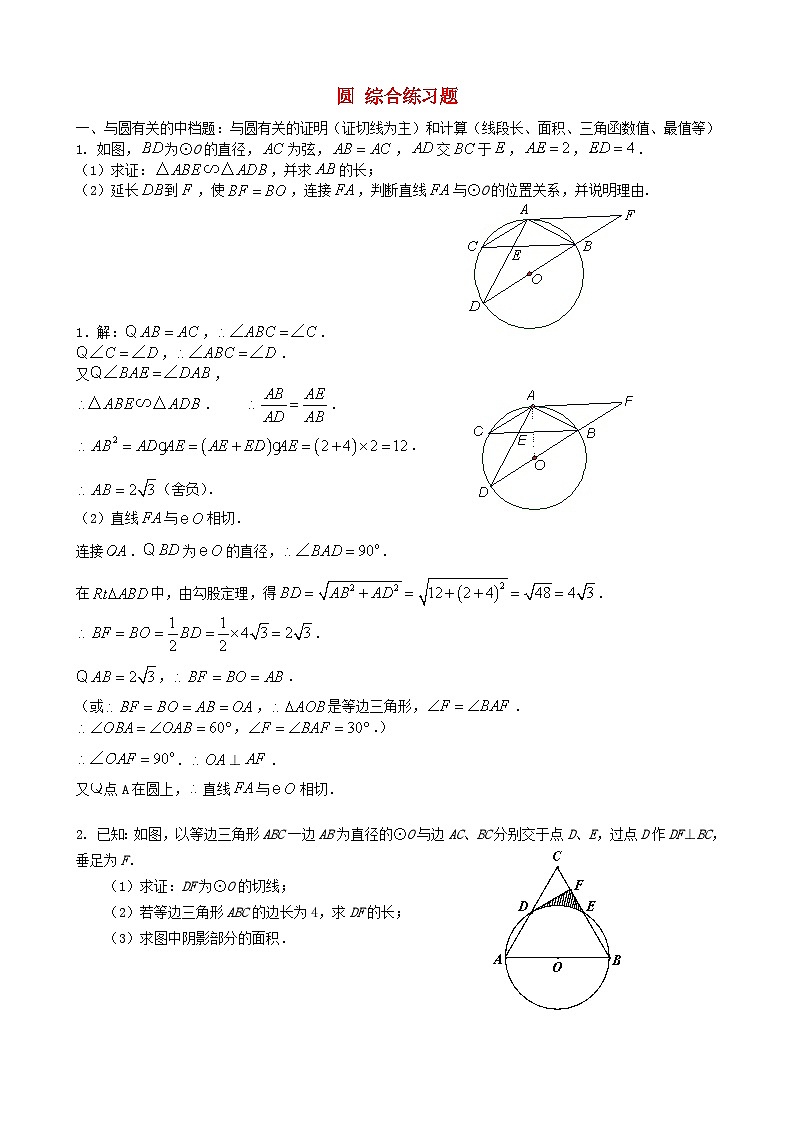 圆 综合练习题
一、与圆有关的中档题:与圆有关的证明(证切线为主)和计算(线段长、面积、三角函数值、最值等)
1. 如图,BD为⊙O的直径,AC为弦,AB=AC,AD交BC于E,AE=2,ED=4.
(1)求证:△ABE∽△ADB,并求AB的长;
(2)延长DB到F,使BF=BO,连接FA,判断直线FA与⊙O的位置关系,并说明理由.
A
F
C
B
E
O
D
1.解:Q AB=AC,∴∠ABC=∠C.
Q∠C=∠D,∴∠ABC=∠D.
又Q∠BAE=∠DAB,
∴△ABE∽△ADB. ∴ AB/AD=AE/AB.
∴ AB²=ADgAE=(AE+ED)gAE=(2+4)×2=12.
∴ AB=2√3(舍负).
(2)直线FA与e O相切.
连接OA.Q BD为e O的直径,∴∠BAD=90°.
在Rt△ABD中,由勾股定理,得BD=√(AB²+AD²)=√(12+(2+4)²)=√48=4√3.
∴ BF=BO=1/2BD=1/2×4√3=2√3.
Q AB=2√3,∴ BF=BO=AB.
(或∴ BF=BO=AB=OA,∴ΔAOB是等边三角形,∠F=∠BAF.
∴∠OBA=∠OAB=60°,∠F=∠BAF=30°.)
∴∠OAF=90°.∴OA⊥AF.
又Q点A在圆上,∴直线FA与e O相切.
A
F
C
B
E
O
D
2. 已知:如图,以等边三角形ABC一边AB为直径的⊙O与边AC、BC分别交于点D、E,过点D作DF⊥BC,
垂足为F.
(1)求证:DF为⊙O的切线;
(2)若等边三角形ABC的边长为4,求DF的长;
(3)求图中阴影部分的面积.
C
F
D
E
A
O
B